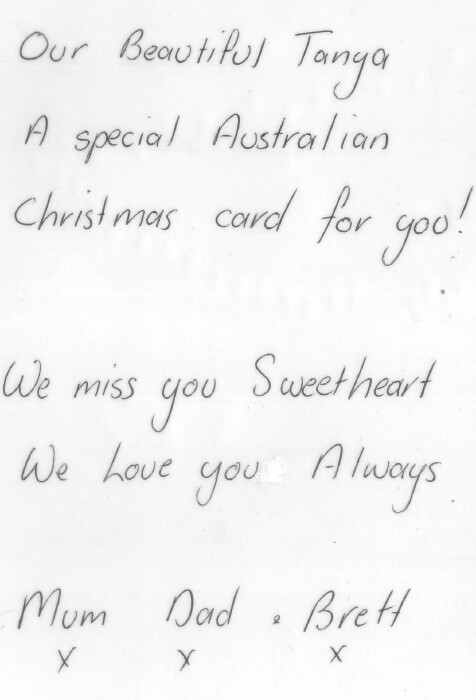 Our Beautiful Tanya
A special Australian
Christmas card for you!
We miss you Sweetheart
We Love you Always
Mum Dad & Brett
x x x